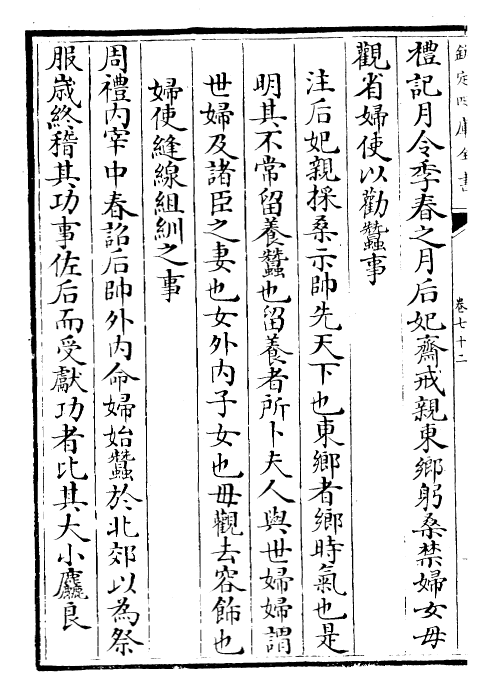 欽定四庫全書
卷七十二
禮記月令季春之月后妃齋戒親東鄉躬桑禁婦女毋
觀省婦使以勸蠶事
注后妃親採桑示帥先天下也東鄉者鄉時氣也是
明其不常留養蠶也留養者所卜夫人與世婦婦謂
世婦及諸臣之妻也女外内子女也毋觀去容飾也
婦使縫線組紃之事
周禮内宰中春詔后帥外内命婦始蠶於北郊以為祭
服歲終稽其功事佐后而受獻功者比其大小麤良